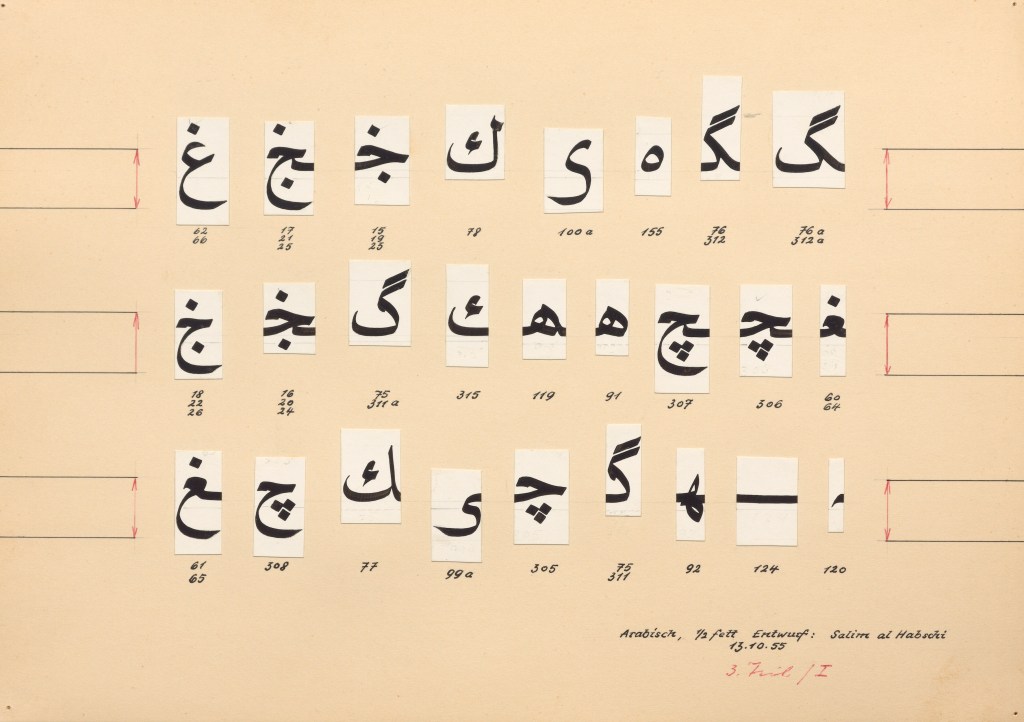 غ ج ج ك ى ه گ گ
62 17 15 78 100a 155 76 76a
66 21 19 312 312a
25 23
خ ج گ ك ه ه چ چ غ
18 16 75 315 119 91 307 306 60
22 20 311a 64
26 24
غ چ ك ى چ گ ه ـ
61 308 77 99a 305 75 92 124 120
65 311
Arabisch, 1/2 fett Entwurf: Salim al Habschi
13.10.55
3. Teil / I